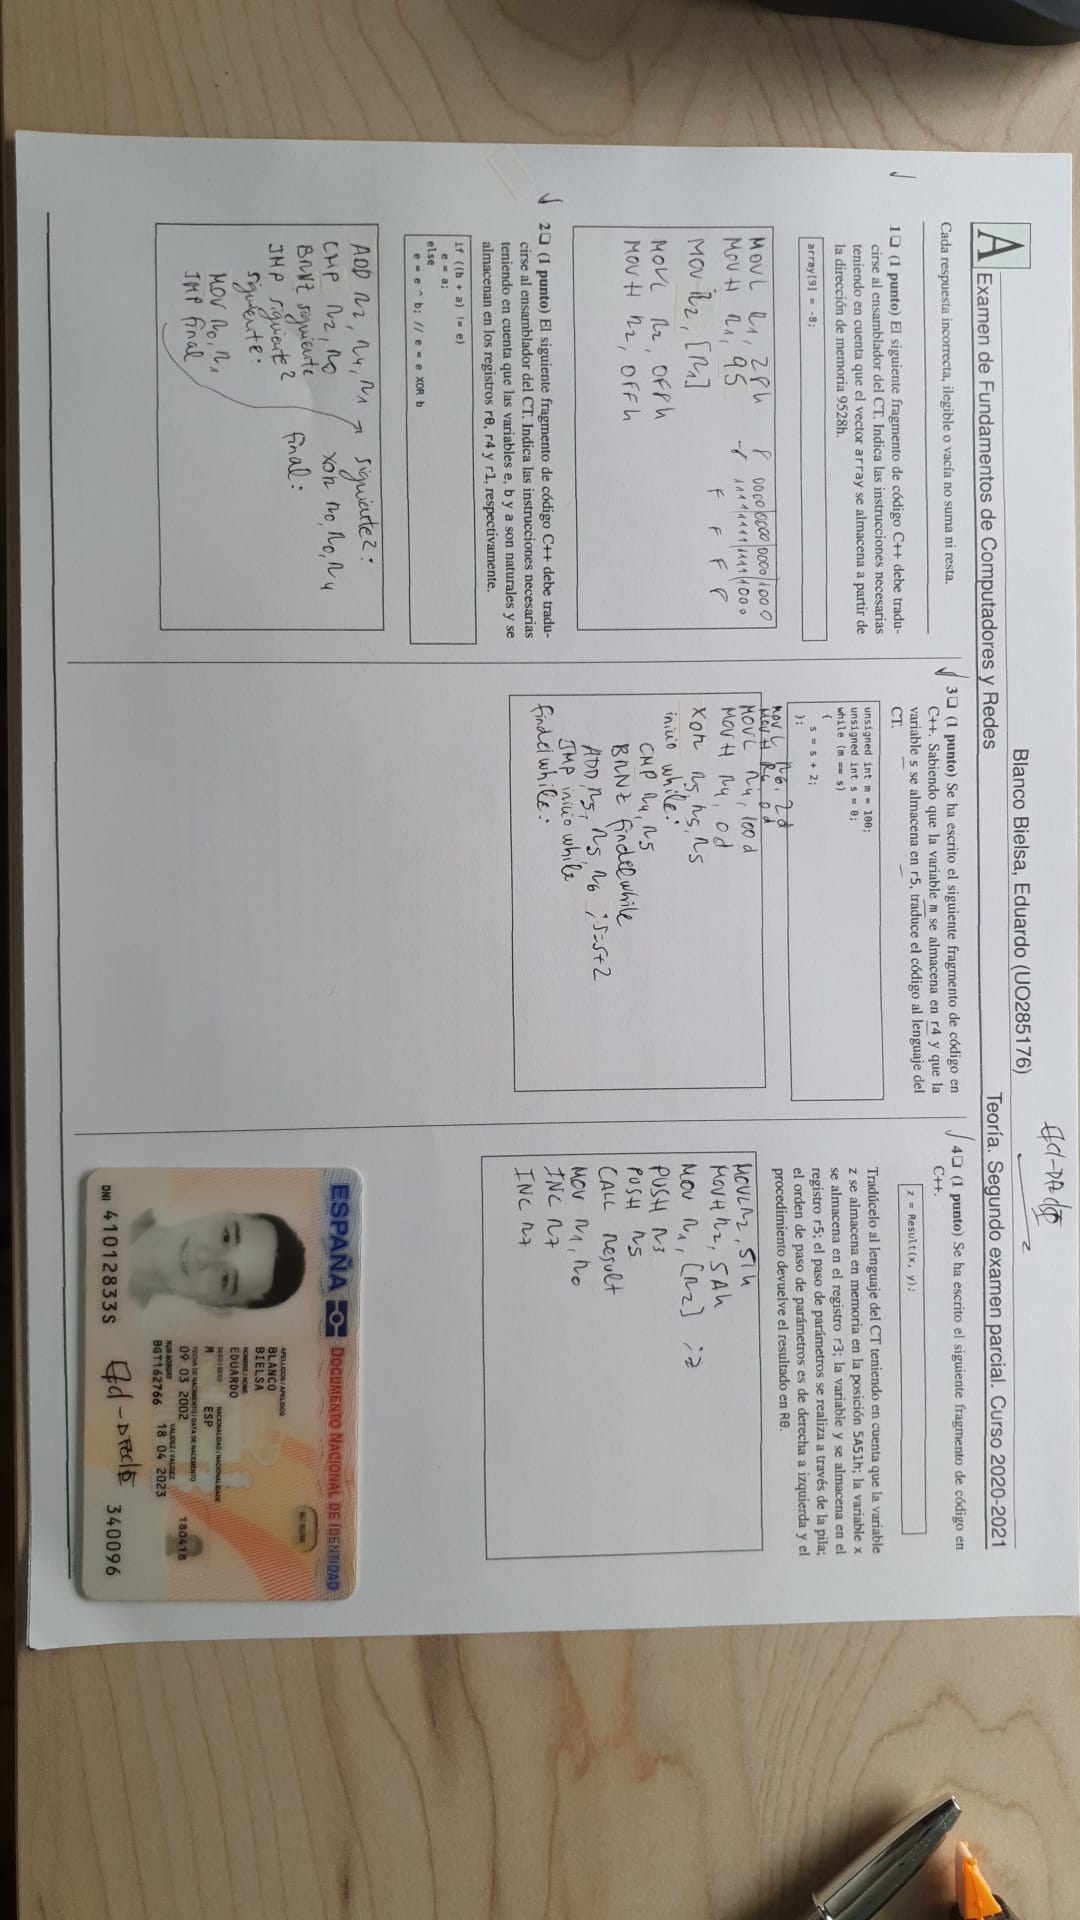 Blanco Bielsa, Eduardo (UO285176)
A
Examen de Fundamentos de Computadores y Redes
Teoría. Segundo examen parcial. Curso 2020-2021
Cada respuesta incorrecta, ilegible o vacía no suma ni resta.
1❑ (1 punto) El siguiente fragmento de código C++ debe tradu-
cirse al ensamblador del CT. Indica las instrucciones necesarias
teniendo en cuenta que el vector array se almacena a partir de
la dirección de memoria 9528h.
array[9] = -8;
MOVL R1, 28h
MOVH R1, 95
MOV R2, [R1]
MOVL R2, 0F8h
MOVH R2, 0FFh
8 0000|0000|0000|1000
-8 1111|1111|1111|1000
F F F 8
2❑ (1 punto) El siguiente fragmento de código C++ debe tradu-
cirse al ensamblador del CT. Indica las instrucciones necesarias
teniendo en cuenta que las variables e, b y a son naturales y se
almacenan en los registros r0, r4 y r1, respectivamente.
if ((b + a) != e)
e = a;
else
e = e ^ b; // e = e XOR b
ADD R2, R4, R1
CMP R2, R0
BRNZ siguiente
JMP siguiente2
siguiente:
MOV R0, R1
JMP final
siguiente2:
XOR R0, R0, R4
final:
3❑ (1 punto) Se ha escrito el siguiente fragmento de código en
C++. Sabiendo que la variable m se almacena en r4 y que la
variable s se almacena en r5, traduce el código al lenguaje del
CT.
unsigned int m = 100;
unsigned int s = 0;
while (m == s)
{
s = s + 2;
};
MOVL R6, 2d
MOVH R6, 0d
MOVL R4, 100d
MOVH R4, 0d
XOR R5, R5, R5
inicio while:
CMP R4, R5
BRNZ findelwhile
ADD R5, R5, R6 ; s=s+2
JMP inicio while
findelwhile:
4❑ (1 punto) Se ha escrito el siguiente fragmento de código en
C++.
z = Result(x, y);
Tradúcelo al lenguaje del CT teniendo en cuenta que la variable
z se almacena en memoria en la posición 5A51h; la variable x
se almacena en el registro r3; la variable y se almacena en el
registro r5; el paso de parámetros se realiza a través de la pila;
el orden de paso de parámetros es de derecha a izquierda y el
procedimiento devuelve el resultado en R0.
MOVL R2, 51h
MOVH R2, 5Ah
MOV R1, [R2] ; z
PUSH R3
PUSH R5
CALL Result
MOV R1, R0
INC R7
INC R7
ESPAÑA
DOCUMENTO NACIONAL DE IDENTIDAD
APELLIDOS / APELIDOS
BLANCO
BIELSA
NOMBRE / NOME
EDUARDO
SEXO / SEXO NACIONALIDAD / NACIONALIDADE
M ESP
FECHA DE NACIMIENTO / DATA DE NACEMENTO
09 03 2002
180418
NUM SOPORT VALIDEZ / VALIDEZ
BGT162766 18 04 2023
DNI 41012833S
340096